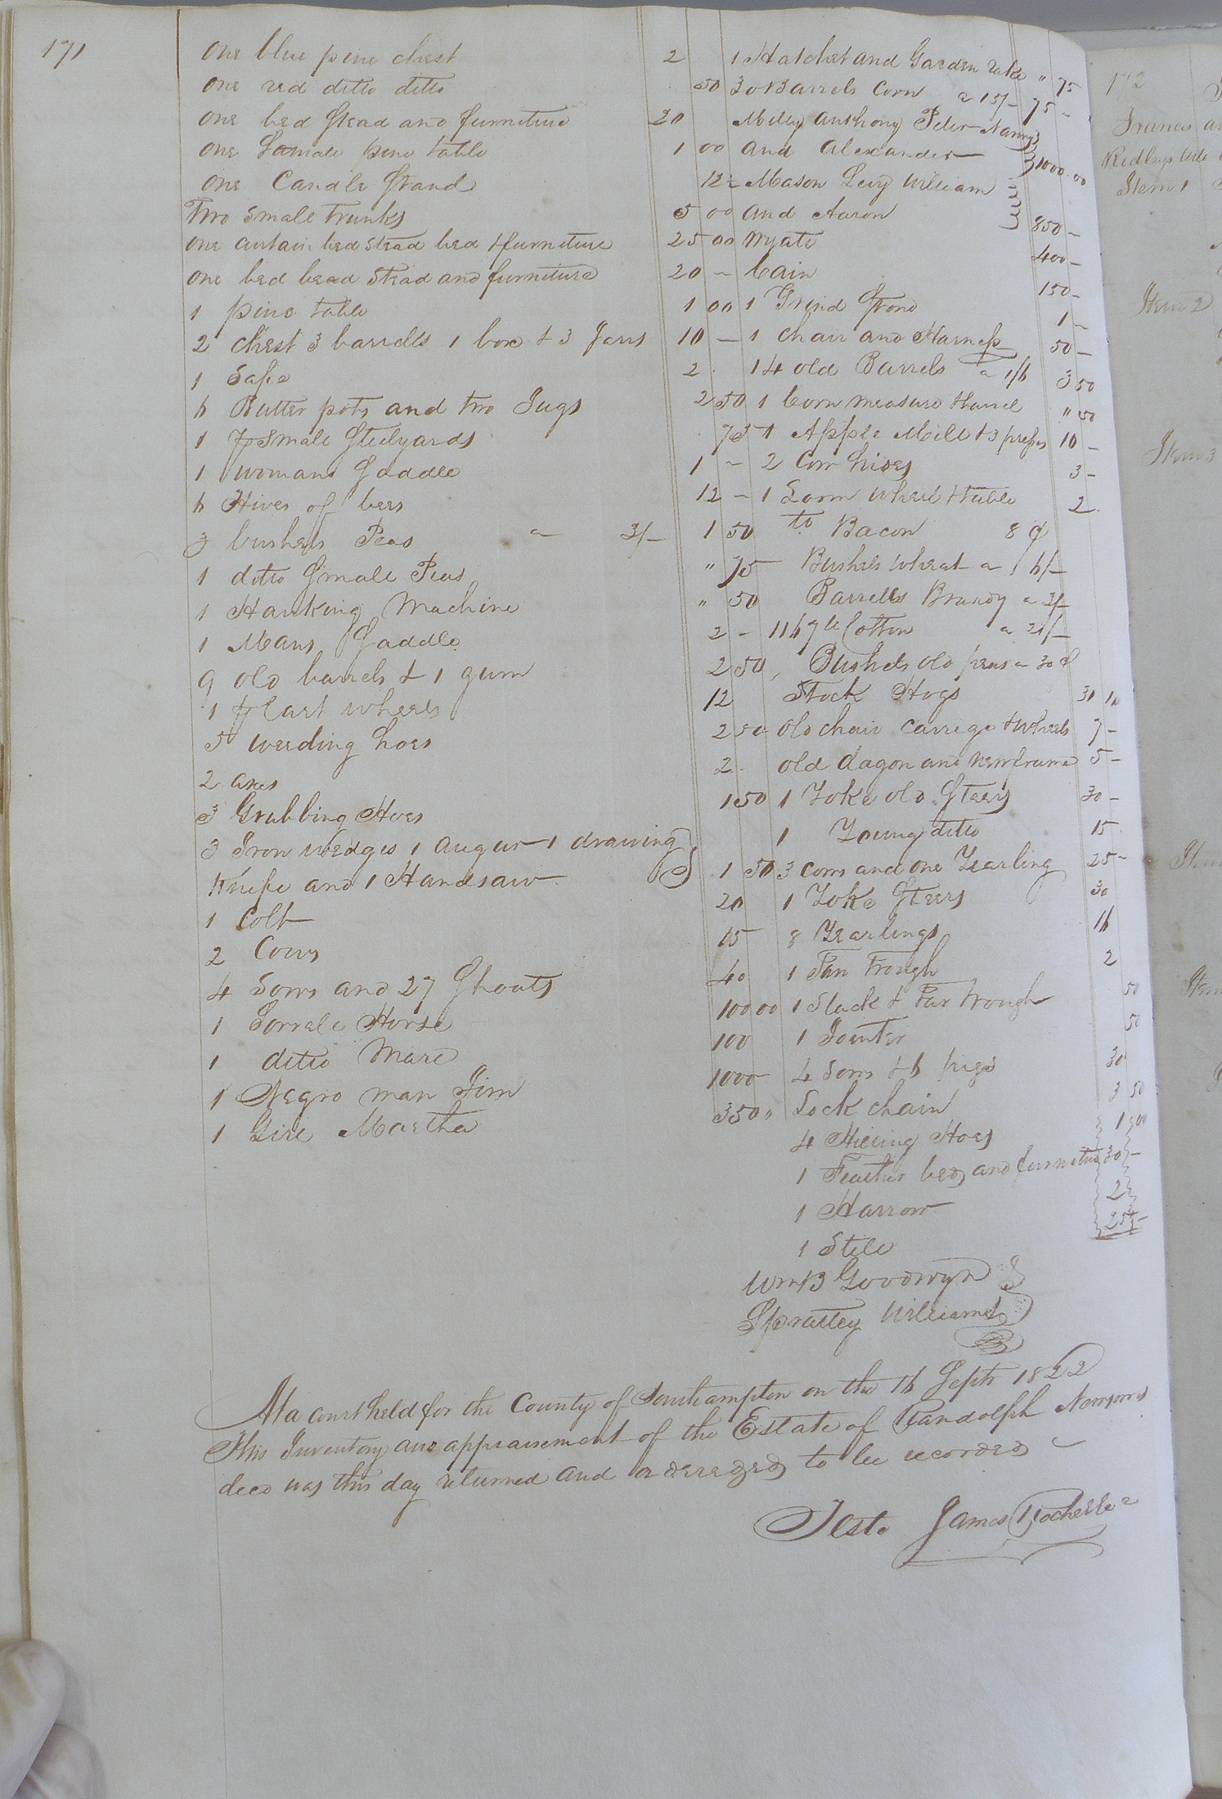 171
one blue pine chest 2
one red ditto ditto 50
one bed stead and furniture 20
one small pine table 1 00
one Candle Stand 12½
Two small trunks 5 00
one curtain bed stead bed & furniture 25 00
one bed bead stead and furniture 20 -
1 pine table 1 00
2 chest 3 barrells 1 box & 3 Jars 10 -
1 Safe 2
6 Butter pots and two Jugs 2 50
1 pr small Steelyards 75
1 womans Saddle 1 -
6 Hives of bees 12 -
3 bushels Peas a 3/- 1 50
1 ditto Small Peas " 75
1 Hanking Machine " 50
1 Mans Saddle 2 -
9 old barrels & 1 gum 2 50
1 pr Cart wheels 12
5 weeding hoes 2 50
2 axes 2
3 Grubbing Hoes 1 50
3 Iron wedges 1 augur 1 drawing
Knife and 1 Handsaw 1 50
1 Colt 20
2 Cows 15
4 Sows and 27 Shoats 40
1 Sorrele Horse 100 00
1 ditto Mare 100
1 Negro man Jim 1000
1 Girl Martha 350 "
1 Hatchet and Garden rake " 75
30 Barrels Corn a 15/- 75 -
Milly Anthony Peter Nancy
and Alexander 1000 00
Mason Levy William
and Aaron 850 -
Wyatt 400 -
Cain 150 -
1 Grind Stone 1 -
1 chair and Harness 50 -
14 old Barrels a 1/6 3 50
1 Corn measure & barrel " 50
1 Apple Mill & 3 presses 10 -
2 Cow hides 3 -
1 Loom wheel & table 2
to Bacon 8 d
Bushels wheat a 6/-
Barrells Brandy a 2/-
116 lb Cotton a 21/-
Bushels old peas a 30 d
Stock Hogs
old chair carrege & Wheels 7 -
old Wagon and new frame 5 -
1 Yoke old Steers 30 -
1 Young ditto 15
3 cows and one Yearling 25 -
1 Yoke Steers 30
8 Yearlings 16
1 Tan Trough 2
1 Stack & Tar trough 50
1 Jointer 50
4 Sows & 6 pigs 30
Lock chain 3 50
4 Hilling Hoes 1 00
1 Feather bed and furniture 30 -
1 Harrow 2
1 Stile 25 -
Wm B Goodwyn
Spratley Williams
At a court held for the County of Southampton on the 16 Septr 1822
This Inventory and appraisement of the Estate of Randolph Newsoms
decd was this day returned and ordered to be recorded
Teste James Rochelle
172
Item 1
Item 2
Item 3